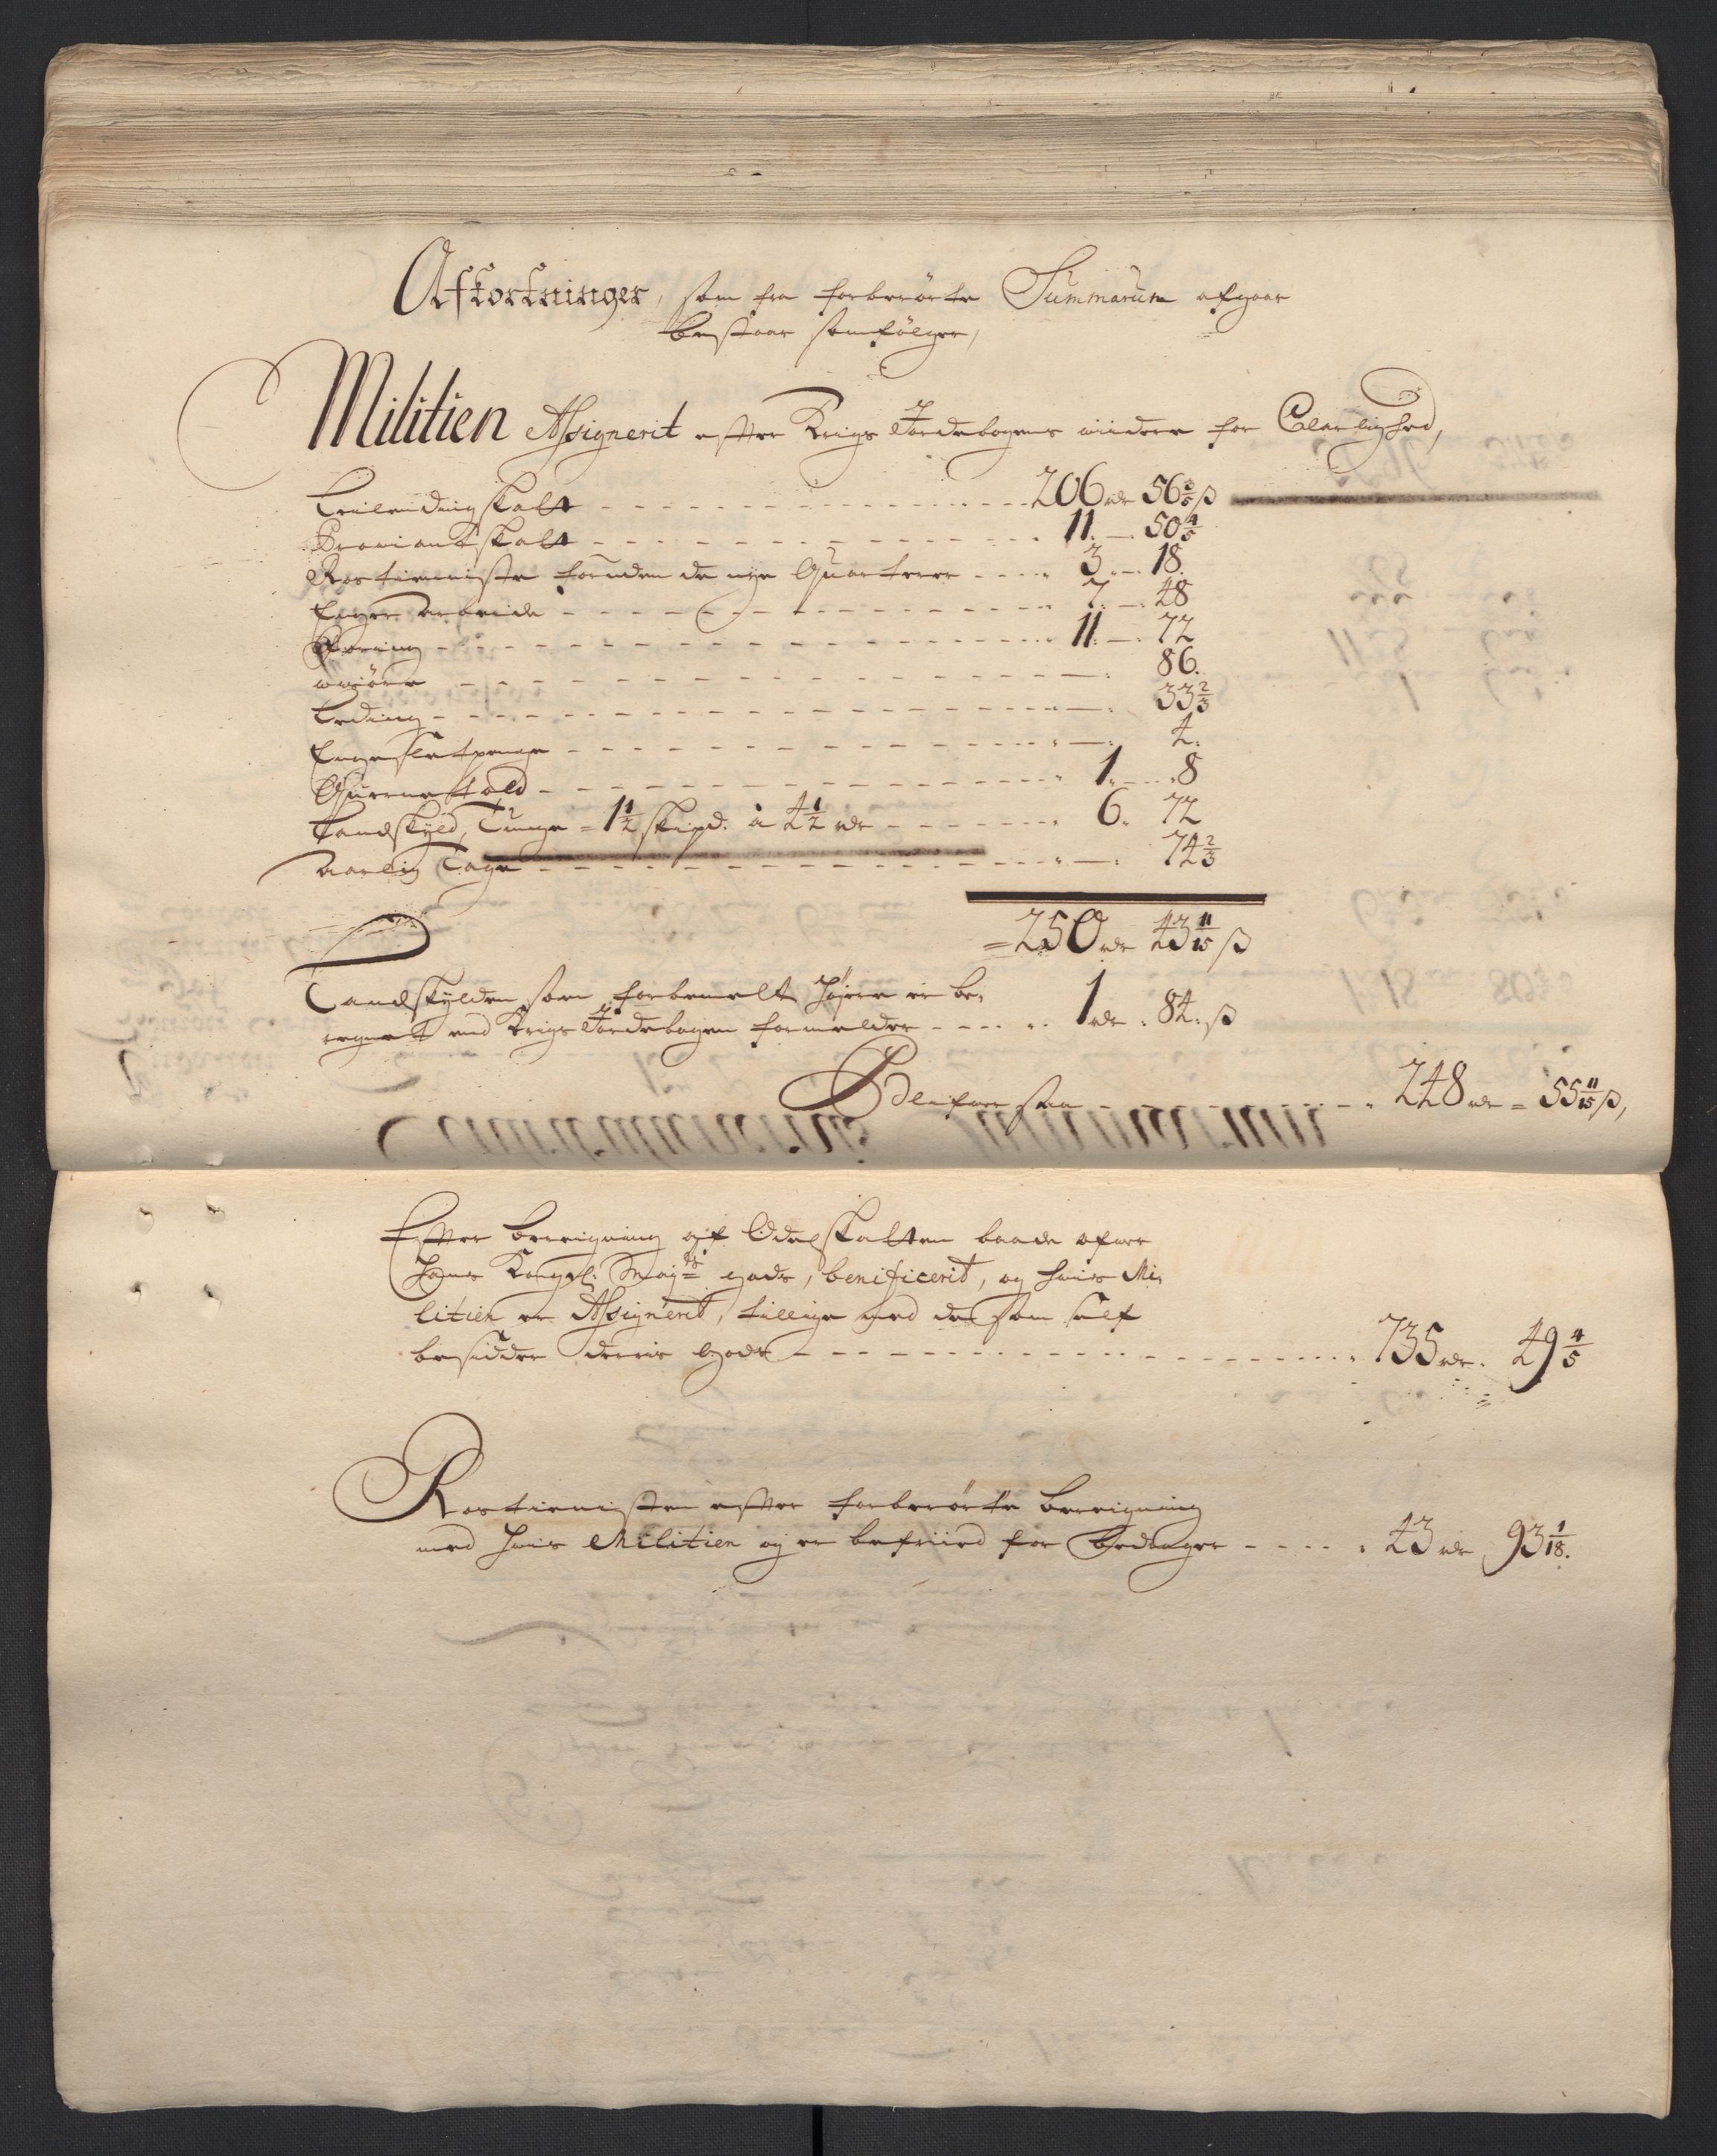 Afkortninger, som fra forberørte Summarum afgaar
bestaar somfølger,
Militien Assignerit efter Krigs Jordebogens viidere for Clarlighed,
Leilending skatt - - - 206 rdr 56 3/5 ß
Proviant skatt - - - 11 - 50 4/5
Rostieniste foruden de nye Quarterer - - - 3 - 18
Foyer arbeide - - - 7 - 48
Foring - - - 11 - 72
- - - 86
Leding - - - 33 2/3
Engesletpenge - - - 4
Quernetold - - - 1 - 8
Landskyld, Tunge = 1 1/2 skipd. à 4 1/2 rdr - - - 6. 72
aarlig Tage - - - 74 2/3
= 250 rdr 43 11/15 ß
Landskylden som forbemelt højere er be,
regnet end Krigs Jordebogen formelder - - - 1 rdr. 84. ß
Blifver saa - - - 248 rdr = 55 11/15 ß,
Efter beregning af Odelskatten baade af
Hans Kongel: May:ts gods, benificerit, og hvis Mi,
litien er Assignerit, tillige med de som self
besidder deris gods - - - 735 rdr. 49 4/5
Rostienisten efter forberørte beregning
med hvis Militien og er befriied for bedrager - - - 43 rdr 93 1/18.